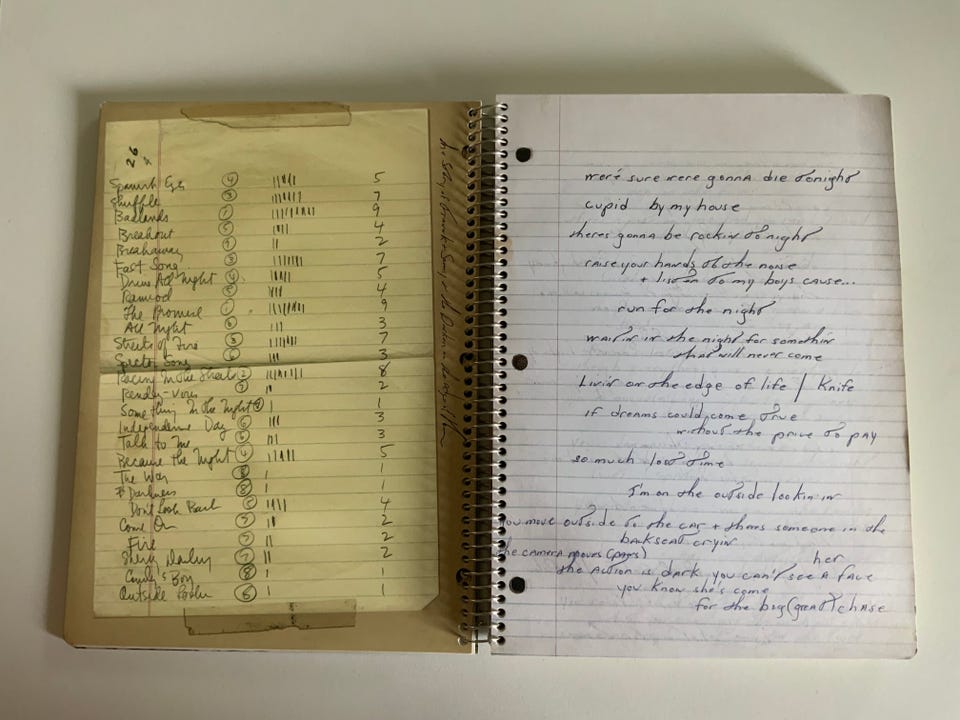 26
Spanish Eyes 4 5
Shuffle 3 7
Badlands 1 9
Breakout 5 4
Breakaway 2
Fast Song 3 7
Drive All Night 4 5
Ramrod 5 4
The Promise 1 9
All Night 6 3
Streets of Fire 3 7
Spector Song 6 3
Racing In the Street 2 8
Rendez-vous 7 2
Something In the Night 1
Independence Day 6 3
Talk to Me 6 3
Because the Night 4 5
The Way 8 1
Darkness 8 1
Dont Look Back 5 4
Come On 7 2
Fire 7 2
Sherry Darling 7 2
Candy's Boy 8 1
Outside Lookin 1
more sure were gonna die tonight
cupid by my house
theres gonna be rockin tonight
raise your hands to the noise
+ listen to my boys cause...
run for the night
waitin in the night for somethin
that will never come
Livin on the edge of life / Knife
if dreams could come true
without the price to pay
so much lost time
I'm on the outside lookin in
you move outside to the car + theres someone in the
backseat cryin
the camera moves (pans) her
the action is dark you can't see a face
you know she's come
for the big (great) chase